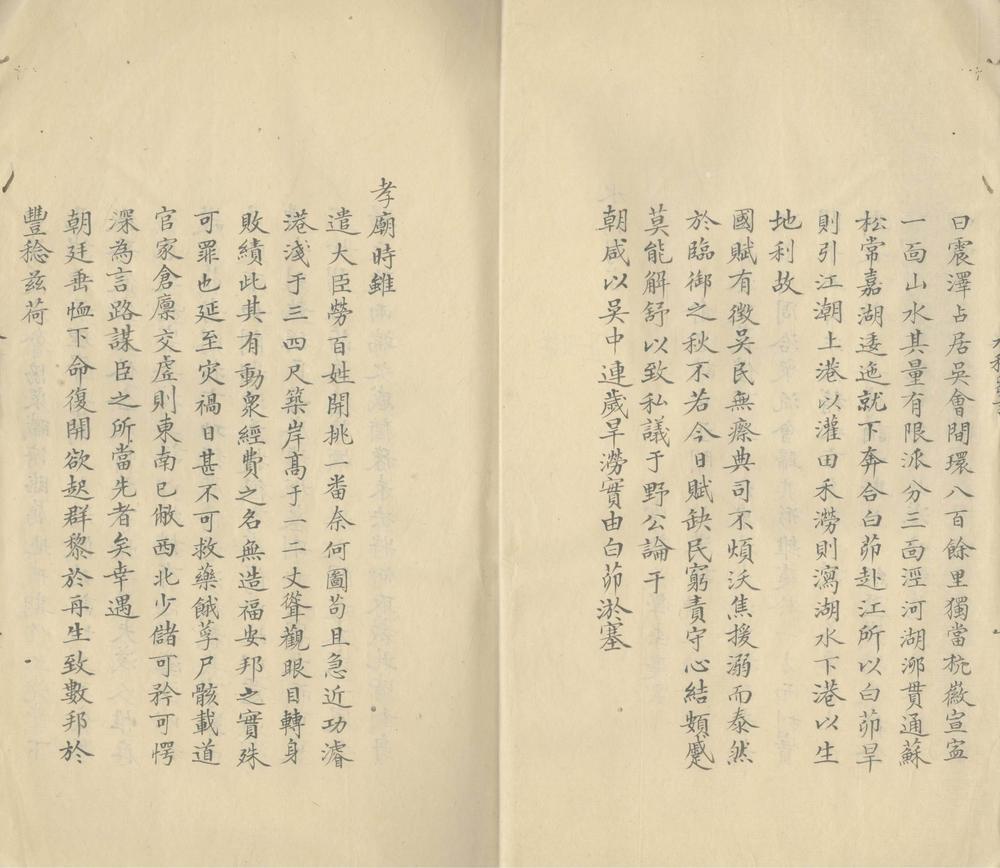 曰震澤占居吳會間環八百餘里獨當杭徽宣寍
一面山水其量有限派分三面涇河湖泖貫通蘇
松常嘉湖逶迤就下奔合白茆赴江所以白茆旱
則引江潮上港以灌田禾澇則瀉湖水下港以生
地利故
國賦有徵吳民無瘵典司不煩沃焦援溺而泰然
於臨御之秋不若今日賦缺民窮責守心結頞蹙
莫能解舒以致私議于野公論于
朝咸以吳中連歲旱澇實由白茆淤塞
孝廟時雖
遣大臣勞百姓開挑一番奈何圖苟且急近功濬
港淺于三四尺築岸髙于一二丈聳觀眼目轉身
敗績此其有動衆經費之名無造福安邦之實殊
可罪也延至灾禍日甚不可救藥餓莩尸骸載道
官家倉廪交虗則東南已敝西北少儲可矜可愕
深為言路謀臣之所當先者矣幸遇
朝廷垂恤下命復開欲起群黎於再生致數邦於
豐稔兹荷